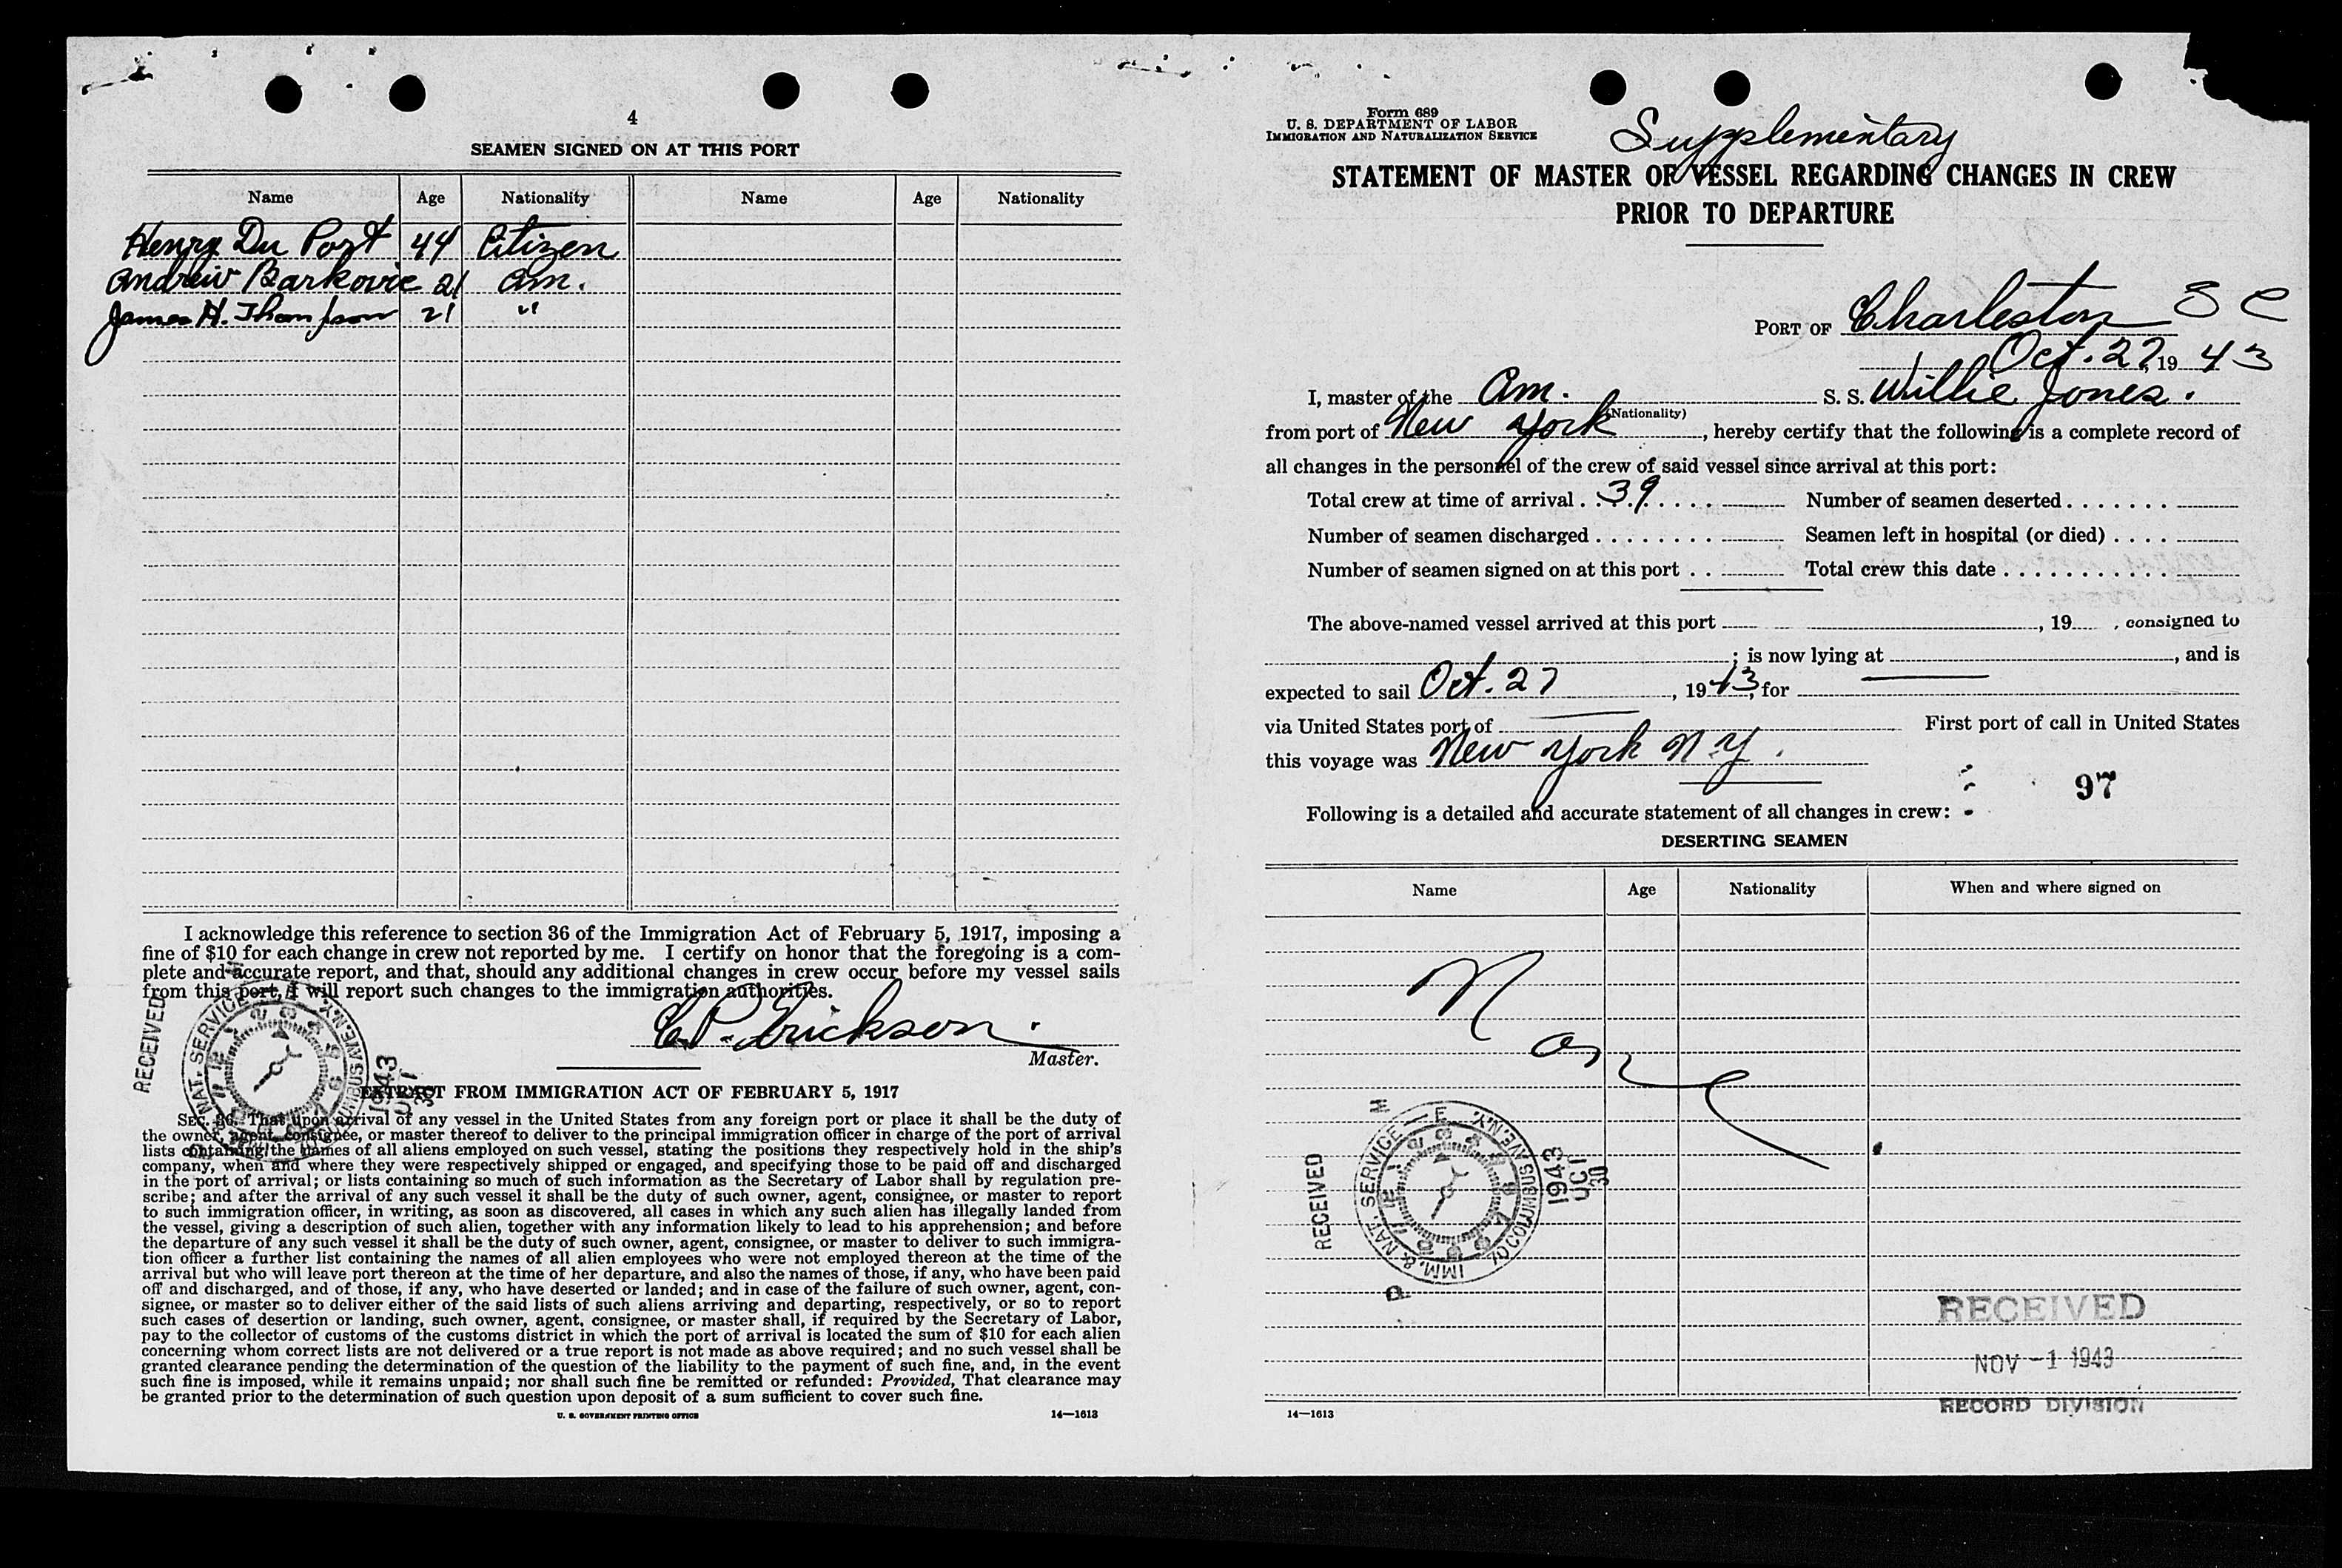 4
SEAMEN SIGNED ON AT THIS PORT
Name Age Nationality Name Age Nationality
Henry Du Port 44 Citizen
Andrew Barkovic 21 Am.
James H. Thompson 21 "
I acknowledge this reference to section 36 of the Immigration Act of February 5, 1917, imposing a
fine of $10 for each change in crew not reported by me. I certify on honor that the foregoing is a com-
plete and accurate report, and that, should any additional changes in crew occur before my vessel sails
from this port, I will report such changes to the immigration authorities.
C.P. Erickson.
Master.
RECEIVED
1943
OCT
EXTRACT FROM IMMIGRATION ACT OF FEBRUARY 5, 1917
SEC. 36. That upon arrival of any vessel in the United States from any foreign port or place it shall be the duty of
the owner, agent, consignee, or master thereof to deliver to the principal immigration officer in charge of the port of arrival
lists containing the names of all aliens employed on such vessel, stating the positions they respectively hold in the ship's
company, when and where they were respectively shipped or engaged, and specifying those to be paid off and discharged
in the port of arrival; or lists containing so much of such information as the Secretary of Labor shall by regulation pre-
scribe; and after the arrival of any such vessel it shall be the duty of such owner, agent, consignee, or master to report
to such immigration officer, in writing, as soon as discovered, all cases in which any such alien has illegally landed from
the vessel, giving a description of such alien, together with any information likely to lead to his apprehension; and before
the departure of any such vessel it shall be the duty of such owner, agent, consignee, or master to deliver to such immigra-
tion officer a further list containing the names of all alien employees who were not employed thereon at the time of the
arrival but who will leave port thereon at the time of her departure, and also the names of those, if any, who have been paid
off and discharged, and of those, if any, who have deserted or landed; and in case of the failure of such owner, agent, con-
signee, or master so to deliver either of the said lists of such aliens arriving and departing, respectively, or so to report
such cases of desertion or landing, such owner, agent, consignee, or master shall, if required by the Secretary of Labor,
pay to the collector of customs of the customs district in which the port of arrival is located the sum of $10 for each alien
concerning whom correct lists are not delivered or a true report is not made as above required; and no such vessel shall be
granted clearance pending the determination of the question of the liability to the payment of such fine, and, in the event
such fine is imposed, while it remains unpaid; nor shall such fine be remitted or refunded: Provided, That clearance may
be granted prior to the determination of such question upon deposit of a sum sufficient to cover such fine.
U. S. GOVERNMENT PRINTING OFFICE 14—1613
Form 689
U. S. DEPARTMENT OF LABOR
IMMIGRATION AND NATURALIZATION SERVICE
Supplementary
STATEMENT OF MASTER OF VESSEL REGARDING CHANGES IN CREW
PRIOR TO DEPARTURE
PORT OF Charleston S C
Oct. 27, 19 43
I, master of the Am. S. S. Willie Jones.
(Nationality)
from port of New York, hereby certify that the following is a complete record of
all changes in the personnel of the crew of said vessel since arrival at this port:
Total crew at time of arrival . 39 . . . . Number of seamen deserted . . . . . . .
Number of seamen discharged . . . . . . . . Seamen left in hospital (or died) . . . .
Number of seamen signed on at this port . . Total crew this date . . . . . . . . . . .
The above-named vessel arrived at this port , 19 , consigned to
; is now lying at , and is
expected to sail Oct. 27, 1943, for
via United States port of First port of call in United States
this voyage was New York N.Y.
97
Following is a detailed and accurate statement of all changes in crew:
DESERTING SEAMEN
Name Age Nationality When and where signed on
None
RECEIVED
IMM. & NAT. SERVICE
70 COLUMBUS AVE. N.Y.
1943
OCT
30
RECEIVED
NOV -1 1943
RECORD DIVISION
14—1613